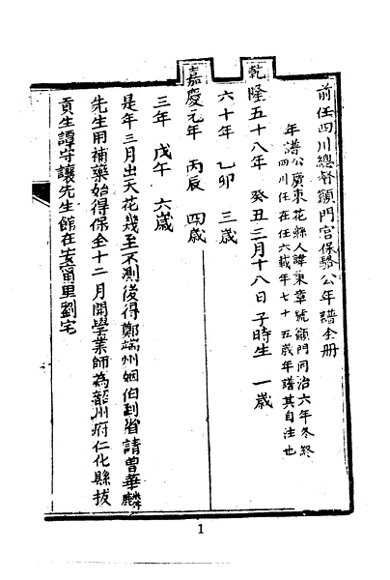 前任四川總督籲門宮保駱公年譜全册
年譜公廣東花縣人諱秉章號籲門同治六年冬終
四川任在任六載年七十五歲年譜其自注也
乾隆五十八年 癸丑三月十八日子時生 一歲
六十年 乙卯 三歲
嘉慶元年 丙辰 四歲
三年 戊午 六歲
是年三月出天花幾至不測後得鄭端州姻伯到省請曾華麟
先生用補藥始得保全十二月開學業師為韶州府仁化縣拔
貢生譚守讓先生館在安甯里劉宅
1